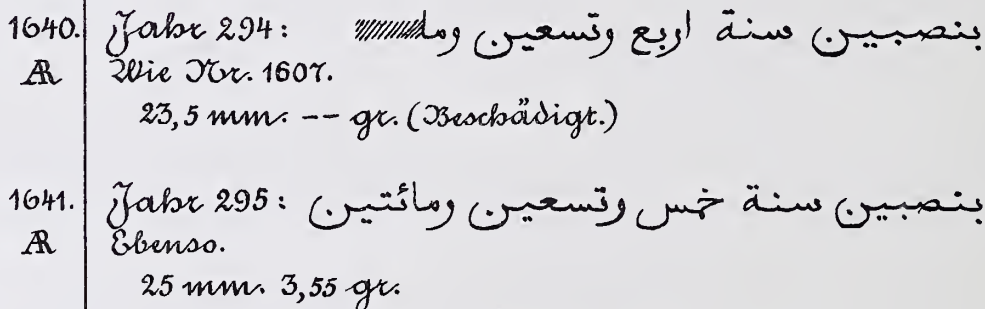 1640. Jahr 294: بنصيبين سنة اربع وتسعين وما
AR Wie Nr. 1607.
23,5 mm. -- gr. (Beschädigt.)
1641. Jahr 295: بنصيبين سنة خمس وتسعين ومائتين
AR Ebenso.
25 mm. 3,55 gr.